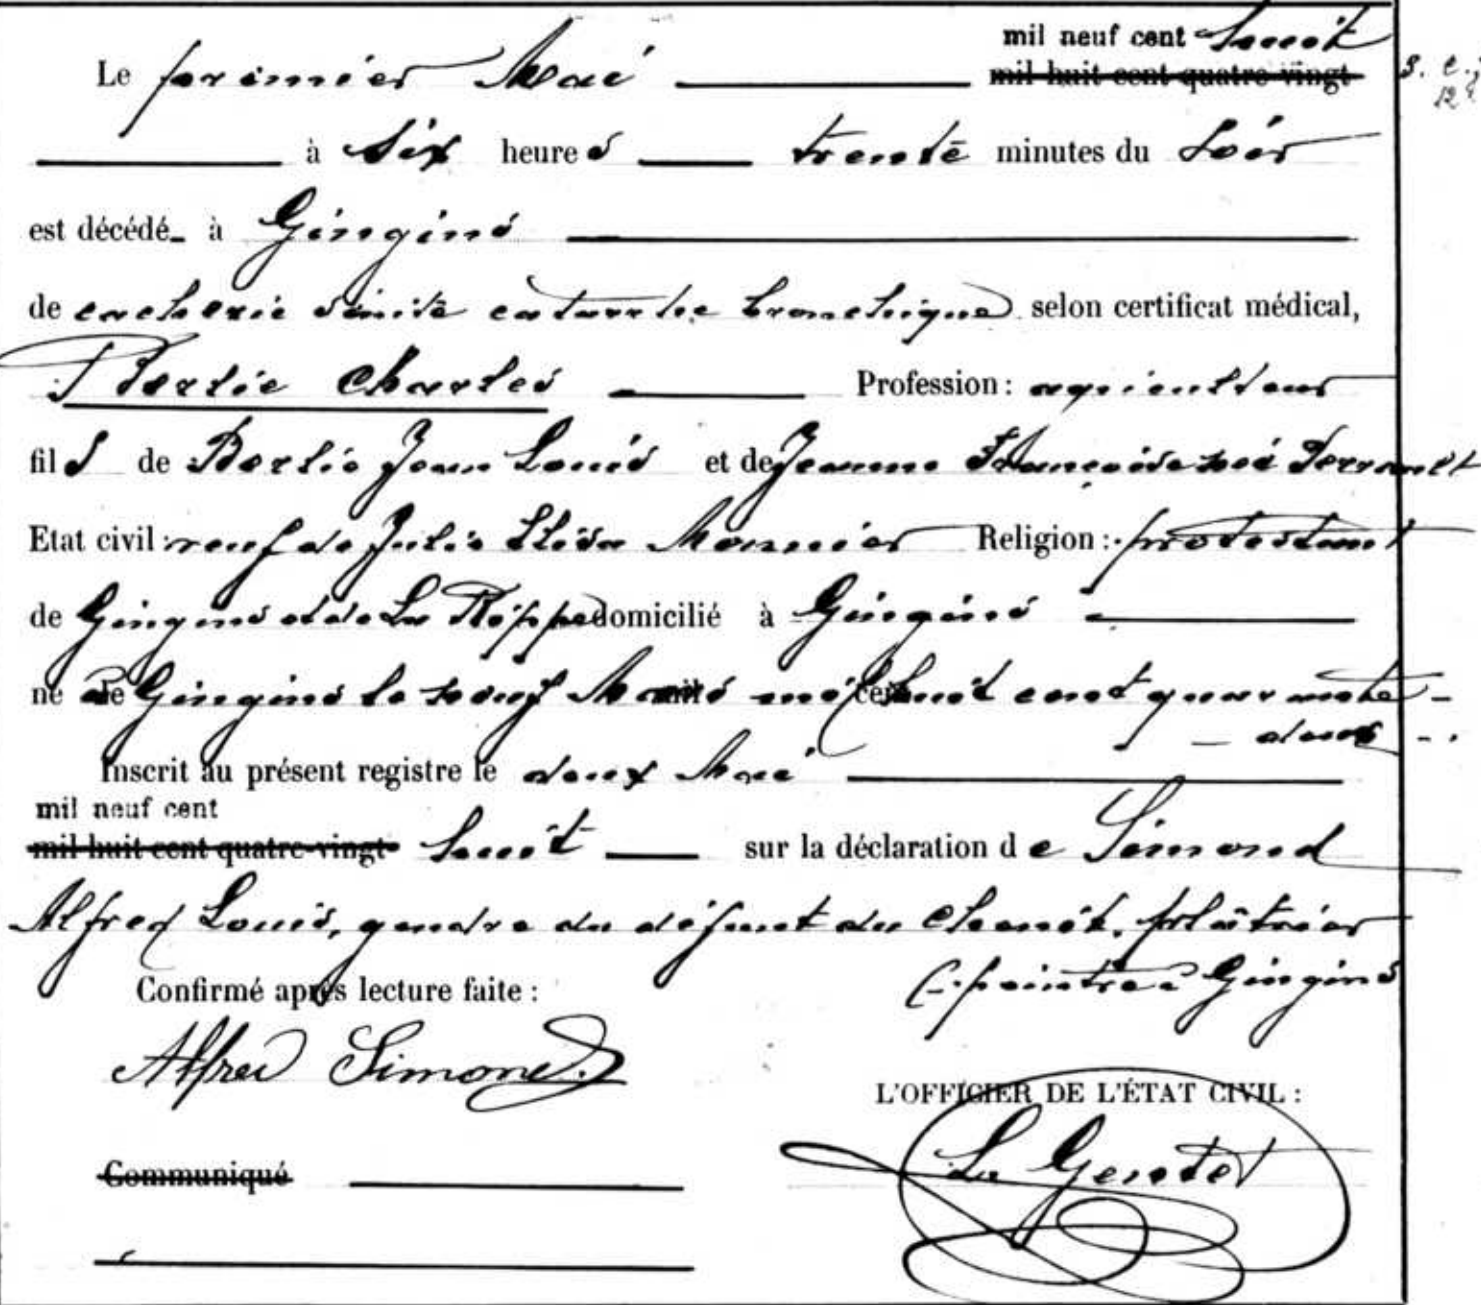 mil neuf cent huit
Le premier Mai mil huit cent quatre-vingt
à six heures trente minutes du soir
est décédé à Gingins
de cachexie sénile catarrhe bronchique selon certificat médical,
Berlie Charles Profession : agriculteur
fils de Berlie Jean Louis et de Jeanne Françoise née
Etat civil : veuf de Julie Elisa Monnier Religion : protestant
de Gingins et de La Rippe domicilié à Gingins
né de Gingins le neuf Mars mil huit cent quarante-
- deux -
Inscrit au présent registre le deux Mai
mil neuf cent
mil huit cent quatre-vingt huit sur la déclaration de Simond
Alfred Louis, gendre du défunt du Chenit, plâtrier
peintre à Gingins
Confirmé après lecture faite :
Alfred Simond
L'OFFICIER DE L'ÉTAT CIVIL :
Ls Gentet
Communiqué